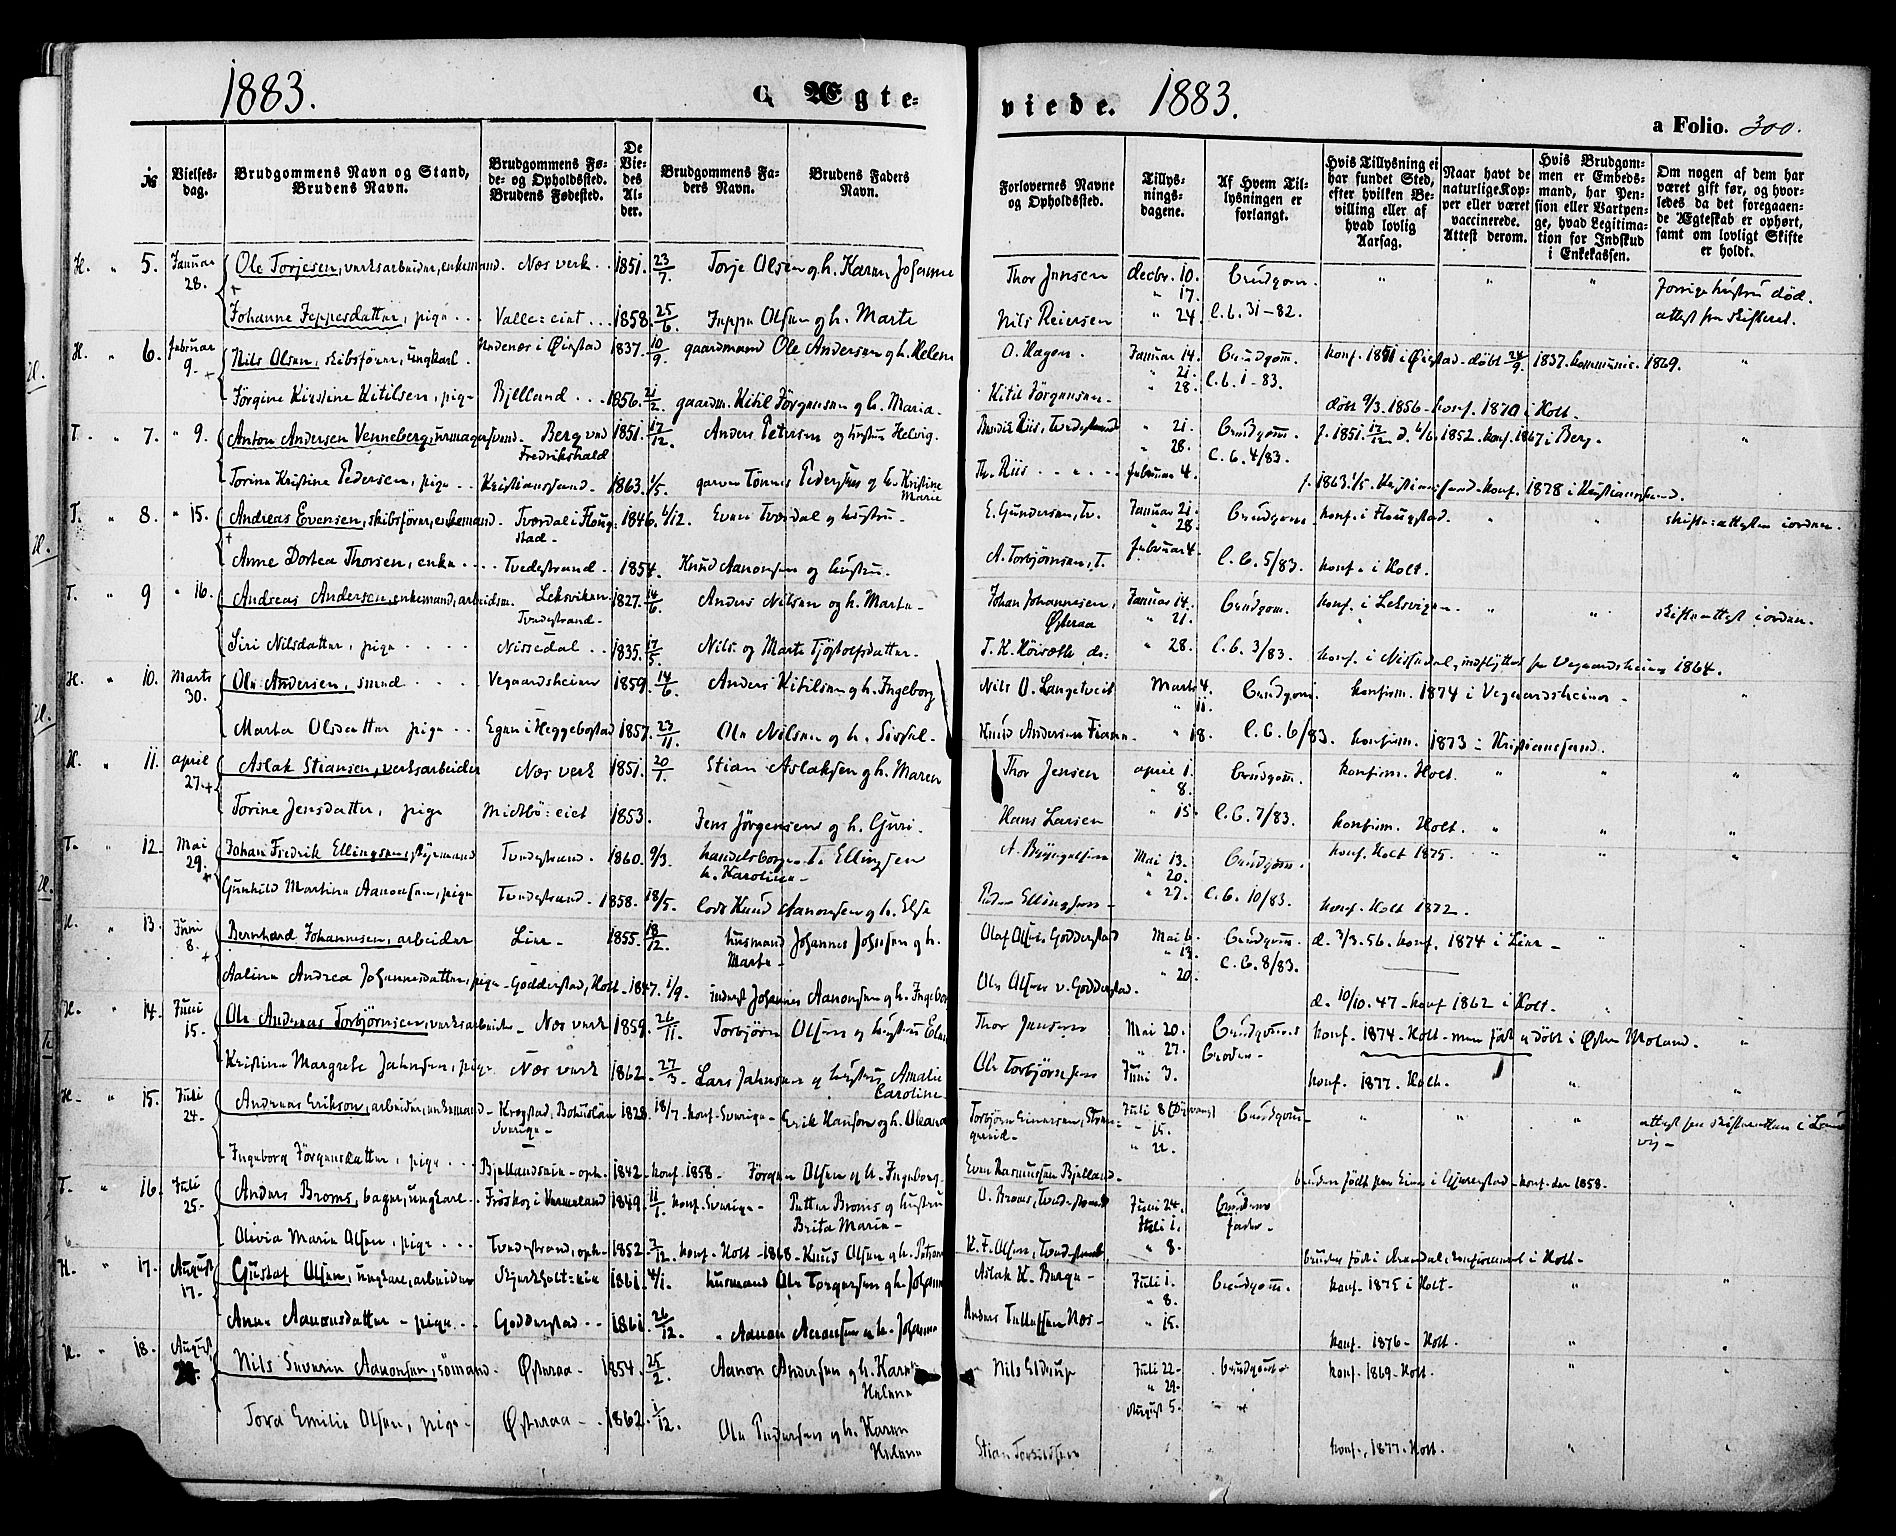 1883.
C. Ægte-
viede. 1883.
a Folio. 300.
№
Vielses-
dag.
Brudgommens Navn og Stand,
Brudens Navn.
Brudgommens Fø-
de- og Opholdssted.
Brudens Fødested.
De
Vie-
des
Al-
der.
Brudgommens Fa-
ders Navn.
Brudens Faders
Navn.
Forlovernes Navne
og Opholdssted.
Tillys-
nings-
dagene.
Af Hvem Til-
lysningen er
forlangt.
Hvis Tillysning ei
har fundet Sted,
efter hvilken Be-
villing eller af
hvad lovlig
Aarsag.
Naar havt de
naturlige Kop-
per eller været
vaccinerede.
Attest derom.
Hvis Brudgom-
men er Embeds-
mand, har Pen-
sion eller Vartpen-
ge, hvad Legitima-
tion for Indskud
i Enkekassen.
Om nogen af dem har
været gift før, og hvor-
ledes da det foregaaen-
de Ægteskab er ophørt,
samt om lovligt Skifte
er holdt.
H. " 5. Januar 28. Ole Torjesen, verksarbeider, enkemand. Næs verk. 1851. 23/7. Torje Olsen og h. Karen Johanne Thor Jensen decbr. 10. " 17. Brudgom. " " " forrige hustru död.
Johanne Jeppesdatter, pige Valle: eiet 1858. 25/6. Jeppe Olsen og h. Marte Nils Reiersen " 24. C.b. 31-82. attest fra skifteret.
H. " 6. Februar 9. Nils Olsen, skibsfører, ungkarl. i Øiestad 1837. 10/9. gaardmand Ole Andersen og h. Helene O. Hagen. Januar 14. " 21. Brudgom. konf. 1851 i Øiestad - döbt 24/9. 1837. kommunic. 1869. "
Jørgine Kirstine Kitilsen, pige Bjelland 1856. 21/2. gaardm. Kitil Jørgensen og h. Maria. Kitil Jørgensen. " 28. C.b. 1-83. döbt 9/3. 1856 - konf. 1870 i Holt.
T. " 7. " 9. Anton Andersen Venneberg, urmagersvend. Berg ved Fredrikshald 1851. 17/12. Anders Petersen og hustru Helvig. Riis, Tvedestrand " 21. " 28. Brudgom. C.b. 4/83. f. 1851. 17/12 d. 6/6. 1852. konf. 1867 i Berg. "
Torine Kristine Pedersen, pige Kristianssand. 1863. 1/5. garver Tönnes Pedersen og h. Kristine Marie Th. Riis Februar 4. f. 1863. 1/5. Kristianssand - konf. 1878 i Kristianssand.
T. " 8. " 15. Andreas Evensen, skibsfører, enkemand. Tverdal i Flougstad. 1846. 6/12. Even Tverdal og hustru. E. Gundersen, Tv. Januar 21. " 28. Brudgom. konf. i Flougstad. " " skifte: attesten i orden.
Anne Dortea Thorsen, enke Tvedestrand. 1854. Knud Aanonsen og hustru. A. Torbjørnsen, T. Februar 4. C.b. 5/83. konf. i Holt.
T. " 9 " 16. Andreas Andersen, enkemand, arbeidsm. Leksviken Tvedestrand. 1827. 14/6. Anders Nilsen og h. Marte Johan Johannesen, Østeraa Januar 14. " 21. Brudgom. konf. i Leksvigen. " " skifteattest i orden.
Siri Nilsdatter, pige Nissedal 1835. 17/5. Nils og Marte Tjöstolfsdatter. T. K. do: " 28. C.b. 3/83. konf. i Nissedal, indflyttet fra Vegaardsheien 1864.
H. " 10. Marts 30. Ole Andersen, smed Vegaardsheien 1859. 14/6. Anders Kitilsen og h. Ingeborg Nils O. Langetveit Marts 4. " 11. Brudgom. konfirm. 1874 i Vegaardsheien. "
Marta Olsdatter pige Egnen i Heggebostad 1857. 23/11. Ole Nilsen og h. Sissel. Knud Andersen " 18. C.b. 6/83. konfirm. 1873 i Kristianssand.
H. " 11. april 27. Aslak Stiansen, verksarbeider Næs verk 1851. 20/1. Stian Aslaksen og h. Maren Thor Jensen april 1. " 8. Brudgom. konfirm. Holt. " " "
Torine Jensdatter, pige Midtbö: eiet 1853. Jens Jørgensen og h. Guri. Hans Larsen " 15. C.b. 7/83. konfirm. Holt. " " "
T. " 12. Mai 29. Johan Fredrik Ellingsen, styrmand Tvedestrand. 1860. 9/3. handelsborger T. Ellingsen h. Karoline. A. Mai 13. " 20. Brudgom. konf. Holt 1875. " " "
Gunhild Martine Aanonsen, pige Tvedestrand. 1858. 18/5. lods Knud Aanonsen og h. Else Peder Ellingsen. " 27. C.b. 10/83. konf. Holt 1872.
H. " 13. Juni 8. Bernhard Johannesen, arbeider Lier. 1855. 18/12. husmand Johannes Johnsen og h. Marte. Olaf Olsen Godderstad Mai 6. " 13. Brudgom. C.b. 8/83. d. 3/3. 56. konf. 1874 i Lier. " "
Aaline Andrea Johannesdatter, pige Godderstad, Holt. 1847. 1/9. inderst Johannes Aanonsen og h. Ingeborg Ole Olsen v. Godderstad. " 20. d. 10/10. 47 - konf 1862 i Holt.
H. " 14. Juni 15. Ole Andreas Torbjørnsen, verksarbeider. Næs verk 1859. 26/11. Torbjörn Olsen og hustru Thor Jensen Mai 20. " 27. Brudgommens Broder. konf. 1874 - Holt - men född og döbt i Østre Moland. "
Kristine Margrete Jahnsen, pige Næs verk 1862. 27/3. Lars Jahnsen og hustru Amalie Caroline. Ole Torbjörnsen Juni 3. konf. 1877. Holt. " "
H. " 15. Juli 24. Andreas Erikson, arbeider, enkemand. Krogstad, Bohuslän Sverige. 1828. 18/7. konf. Sverige. Erik Hansen og h. Oleana Torbjörn Einersen, Juli 8 " 15. " 22. Brudgom. " " " attest fra skifteretten i
Ingeborg Jörgensdatter, pige Bjellandseie - oph. 1842. konf. 1858. Jörgen Olsen og h. Ingeborg. Even Rasmussen Bjelland. bruden född paa i Gjerrestad. konf. der 1858.
T. " 16. Juli 25. Anders Broms, bager, ungkarl. Fröskog i Vermeland 1849. 11/1. konf. Sverige. Petter Broms og hustru Brita Maria. O. Broms, Tvedestrand Juni 24. Juli 1. Brudens fader. " " "
Olivia Marie Olsen, pige Tvedestrand, oph. 1852. 3/12. konf. Holt - 1868. Knud Olsen og h. K. F. Olsen, Tvedestrand, " 8. bruden född i Arendal, konfirmeret i Holt.
H. " 17. August 17. Gustaf Olsen, ungkarl, arbeider Skjerkholt: eie 1861. 4/1. husmand Ole Torgersen og h. Johanne Aslak H. Berge. Juli 1. " 8. Brudgom. konf. 1875 i Holt. " "
Anne Aanonsdatter - pige Godderstad 1861. 26/12. " Aanon Aanonsen og h. Johanne Anders Tellefsen Næs. " 15. konf. 1876 - Holt. " "
H. " 18. August Nils Severin Aanonsen, sömand. Østeraa. 1854. 25/2. Aanon Andersen og h. Karen Helene Nils Eldrup Juli 22. " 29. Brudgom. konf. 1869. Holt. " "
Tora Emilie Olsen, pige Østeraa 1862. 1/12. Ole Pedersen og h. Karen Helene Stian August 5. konf. 1877. Holt. " "